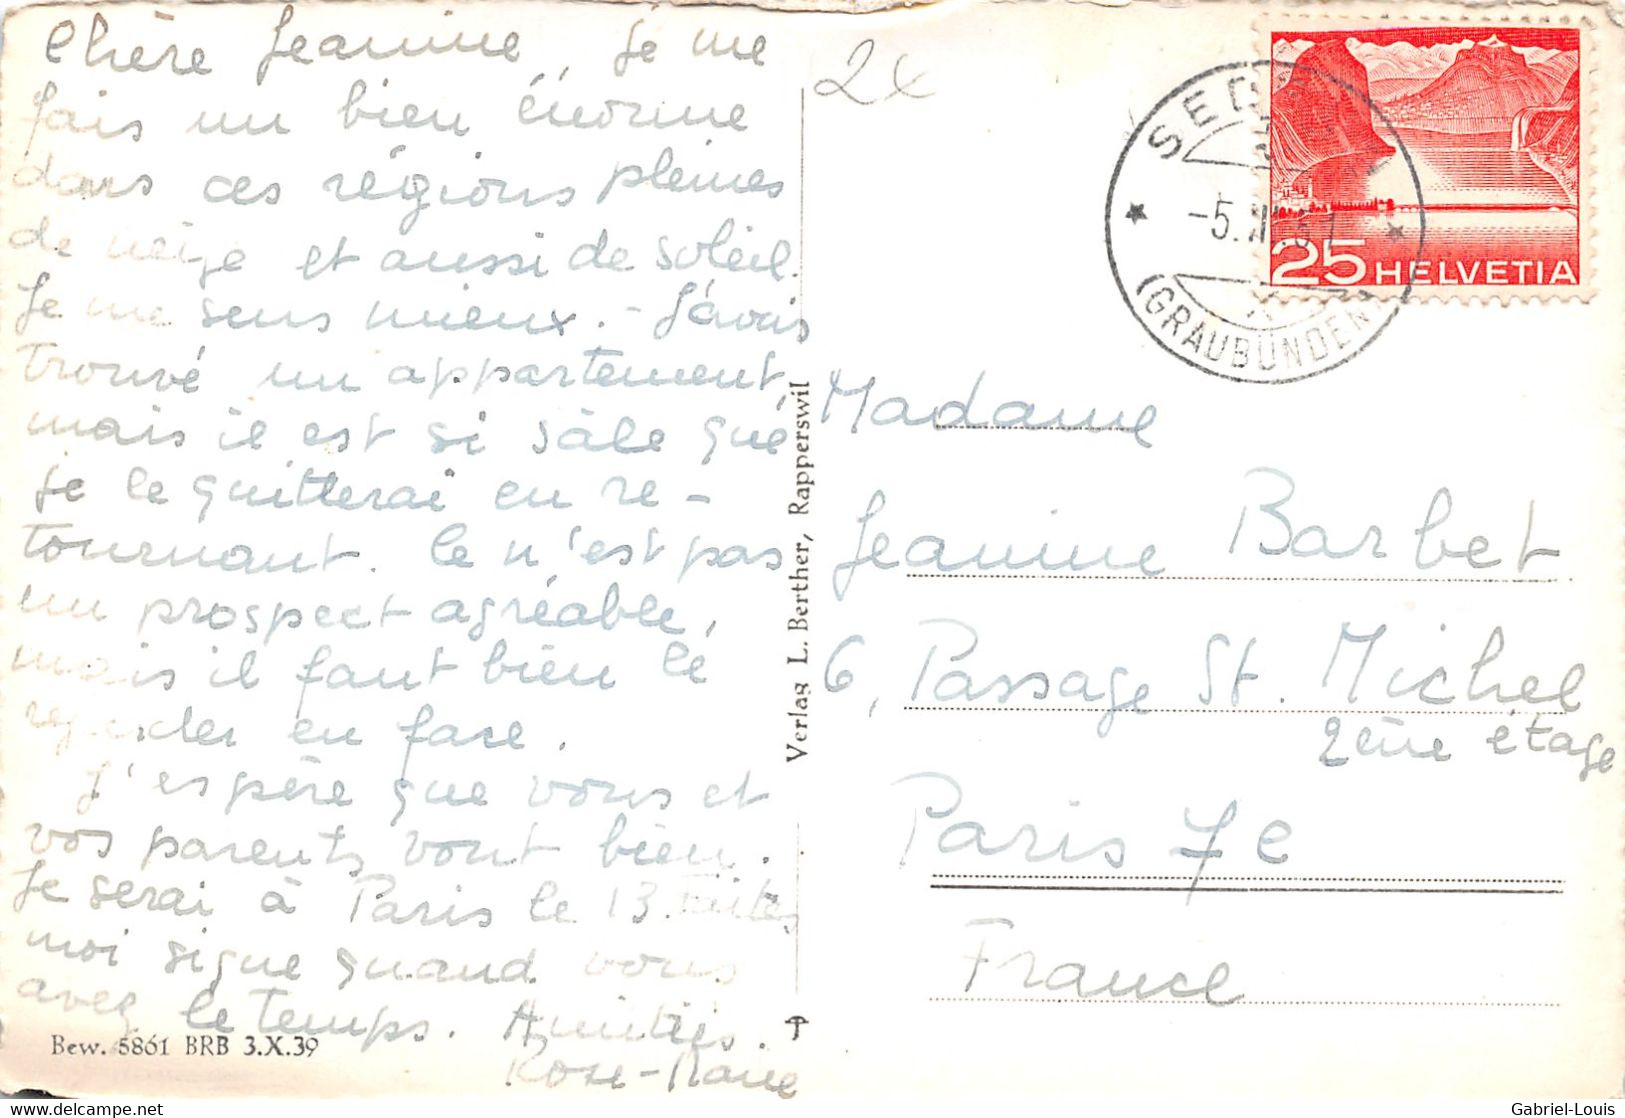 Chère Jeanine, je me
fais un bien énorme
dans ces régions pleines
de neige et aussi de soleil.
Je me sens mieux. - J'avais
trouvé un appartement,
mais il est si sâle que
je le quitterai en re-
tournant. Ce n'est pas
un prospect agréable,
mais il faut bien le
regarder en face.
J'espère que vous et
vos parents vont bien.
Je serai à Paris le 13. Faites
moi signe quand vous
avez le temps. Amitiés.
Rose-Marie
Bew. 5861 BRB 3.X.39
Verlag L. Berther, Rapperswil
2x
SEDRUN
-5.
(GRAUBÜNDEN)
25 HELVETIA
Madame
Jeanine Barbet
6, Passage St. Michel
2ème étage
Paris 7e
France
delcampe.net
Gabriel-Louis